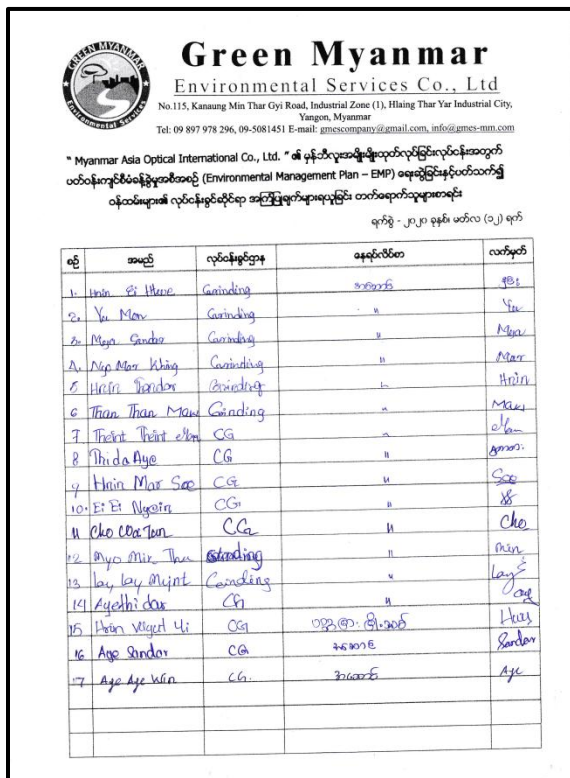 GREEN MYANMAR
Environmental Services
Green Myanmar
Environmental Services Co., Ltd
No.115, Kanaung Min Thar Gyi Road, Industrial Zone (1), Hlaing Thar Yar Industrial City,
Yangon, Myanmar
Tel: 09 897 978 296, 09-5081451 E-mail: gmescompany@gmail.com, info@gmes-mm.com
“ Myanmar Asia Optical International Co., Ltd. ” ၏ မှန်ဘီလူးအမျိုးမျိုးထုတ်လုပ်ခြင်းလုပ်ငန်းအတွက်
ပတ်ဝန်းကျင်စီမံခန့်ခွဲမှုအစီအစဉ် (Environmental Management Plan – EMP) ရေးဆွဲခြင်းနှင့်ပတ်သက်၍
ဝန်ထမ်းများ၏ လုပ်ငန်းခွင်ဆိုင်ရာ အကြံပြုချက်များရယူခြင်း တက်ရောက်သူများစာရင်း
ရက်စွဲ - ၂၀၂၀ ခုနှစ်၊ မတ်လ (၁၂) ရက်
စဉ် အမည် လုပ်ငန်းခွင်ဌာန နေရပ်လိပ်စာ လက်မှတ်
1. Hnin Ei Grinding
2. Yu Mon Grinding " Yu
3. Mya Sandar Grinding " Mya
4. Mar Grinding " Mar
5 Hnin Sandar Grinding " Hnin
6 Than Than Maw Grinding " Maw
7 Theint Theint CG "
8 Thida Aye CG "
9 Hnin Mar Soe CG " Soe
10. Ei Ei Ngein CG "
11 Cho Tun CG " Cho
12 Myo Min Thu Grinding " Min
13 Lay Lay Myint Grinding " Lay
14 Ayethidar CG " Aye
15 Hnin CG
16 Aye Sandar CG အဆောင် Sandar
17 Aye Aye Win CG. အဆောင် Aye